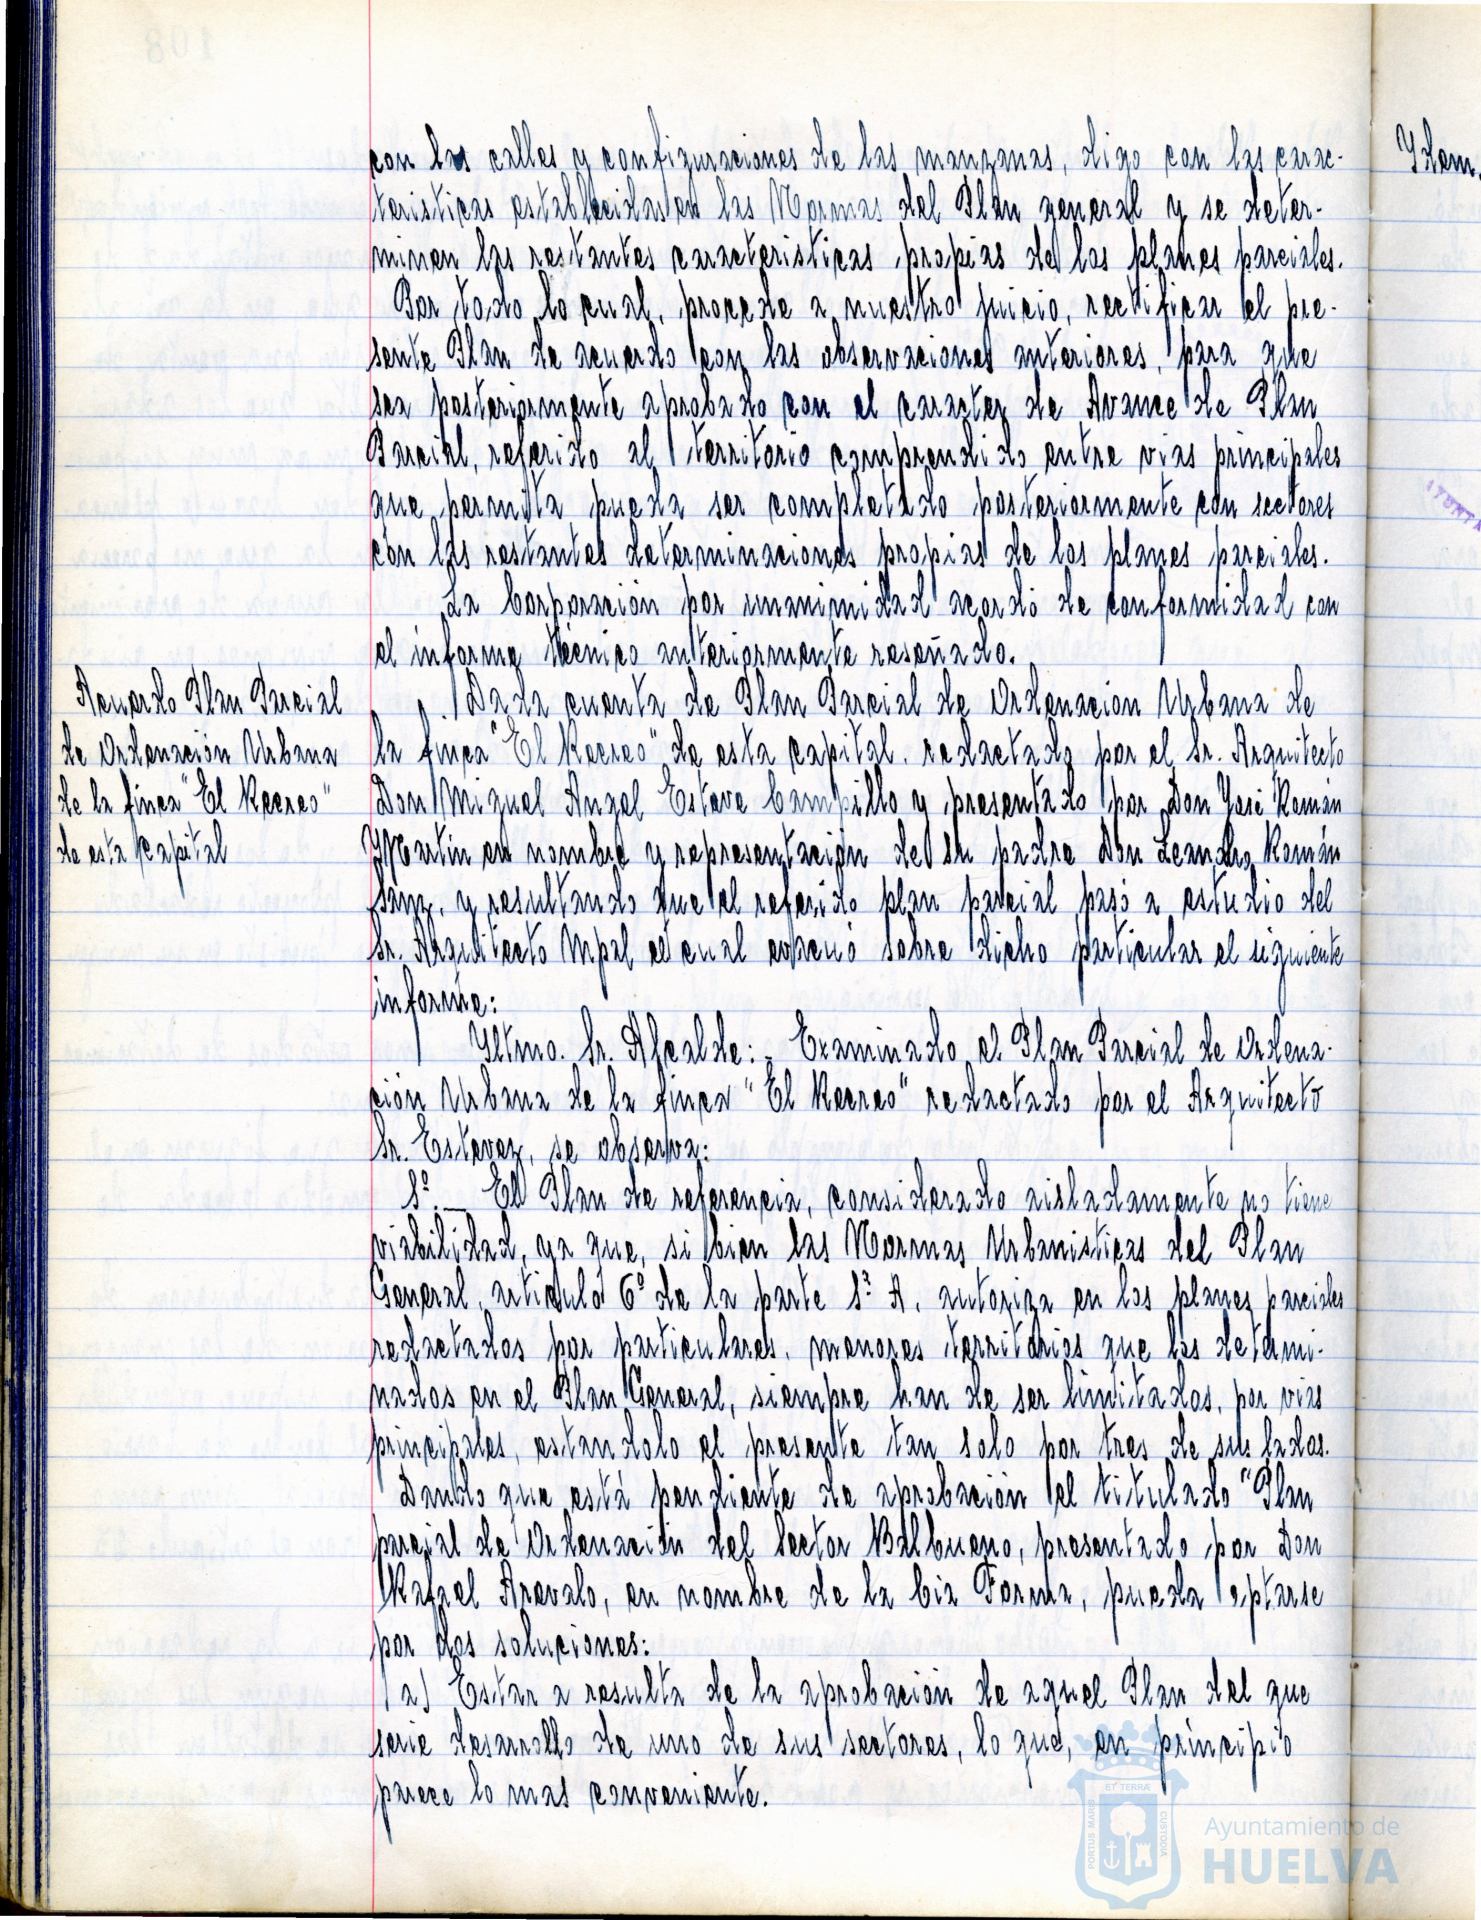 con las calles y configuraciones de las manzanas, digo con las carac-
teristicas establecidas en las Normas del Plan general y se deter-
minen las restantes caracteristicas propias de los planes parciales.
Por todo lo cual, procede a nuestro juicio, rectificar el pre-
sente Plan de acuerdo con las observaciones anteriores, para que
sea posteriormente aprobado con el caracter de Avance de Plan
Parcial, referido al territorio comprendido entre vias principales
que permita pueda ser completado posteriormente con sectores
con las restantes determinaciones propias de los planes parciales.
La Corporación por unanimidad acordó de conformidad con
el informe técnico anteriormente reseñado.
Acuerdo Plan Parcial
de Ordenación Urbana
de la finca "El Recreo"
de esta capital
Dada cuenta de Plan Parcial de Ordenación Urbana de
la finca "El Recreo" de esta capital, redactado por el Sr. Arquitecto
Don Miguel Angel Esteve Campillo y presentado por Don José Román
Martín en nombre y representación de su padre Don Leandro Román
Sanz, y resultando que el referido plan parcial pasó a estudio del
Sr. Arquitecto Mpal el cual evacuó sobre dicho particular el siguiente
informe:
Yltmo. Sr. Alcalde:- Examinado el Plan Parcial de Ordena-
ción Urbana de la finca "El Recreo" redactado por el Arquitecto
Sr. Estevez, se observa:
1º.- El Plan de referencia, considerado aisladamente no tiene
viabilidad, ya que, si bien las Normas Urbanisticas del Plan
General, articulo 6º de la parte 1ª A, autoriza en los planes parciales
redactados por particulares, menores territorios que los determi-
nados en el Plan General, siempre han de ser limitados, por vias
principales, estandolo el presente tan solo por tres de sus lados.
Dando que está pendiente de aprobación el titulado "Plan
parcial de Ordenación del Sector Balbueno, presentado por Don
Rafael Arevalo, en nombre de la Cia Forma, pueda optarse
por dos soluciones:
a) Estar a resulta de la aprobación de aquel Plan del que
serie desarrollo de uno de sus sectores, lo que, en principio
parece lo mas conveniente.
Ydem.
ET TERRÆ
PORTUS MARIS
CUSTODIA
Ayuntamiento de
HUELVA